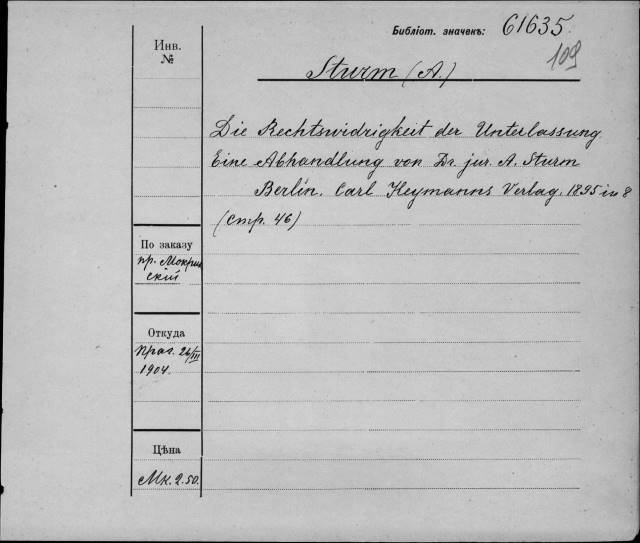 Библіот. значекъ: 61635.
109
Инв.
№
Sturm (A.)
Die Rechtswidrigkeit der Unterlassung
Eine Abhandlung von Dr. jur. A. Sturm
Berlin. Carl Heymanns Verlag. 1895 in 8
(стр. 46)
По заказу
пр. Мокрин
скій
Откуда
Праг. 26/III
1904.
Цѣна
Мк. 2.50.